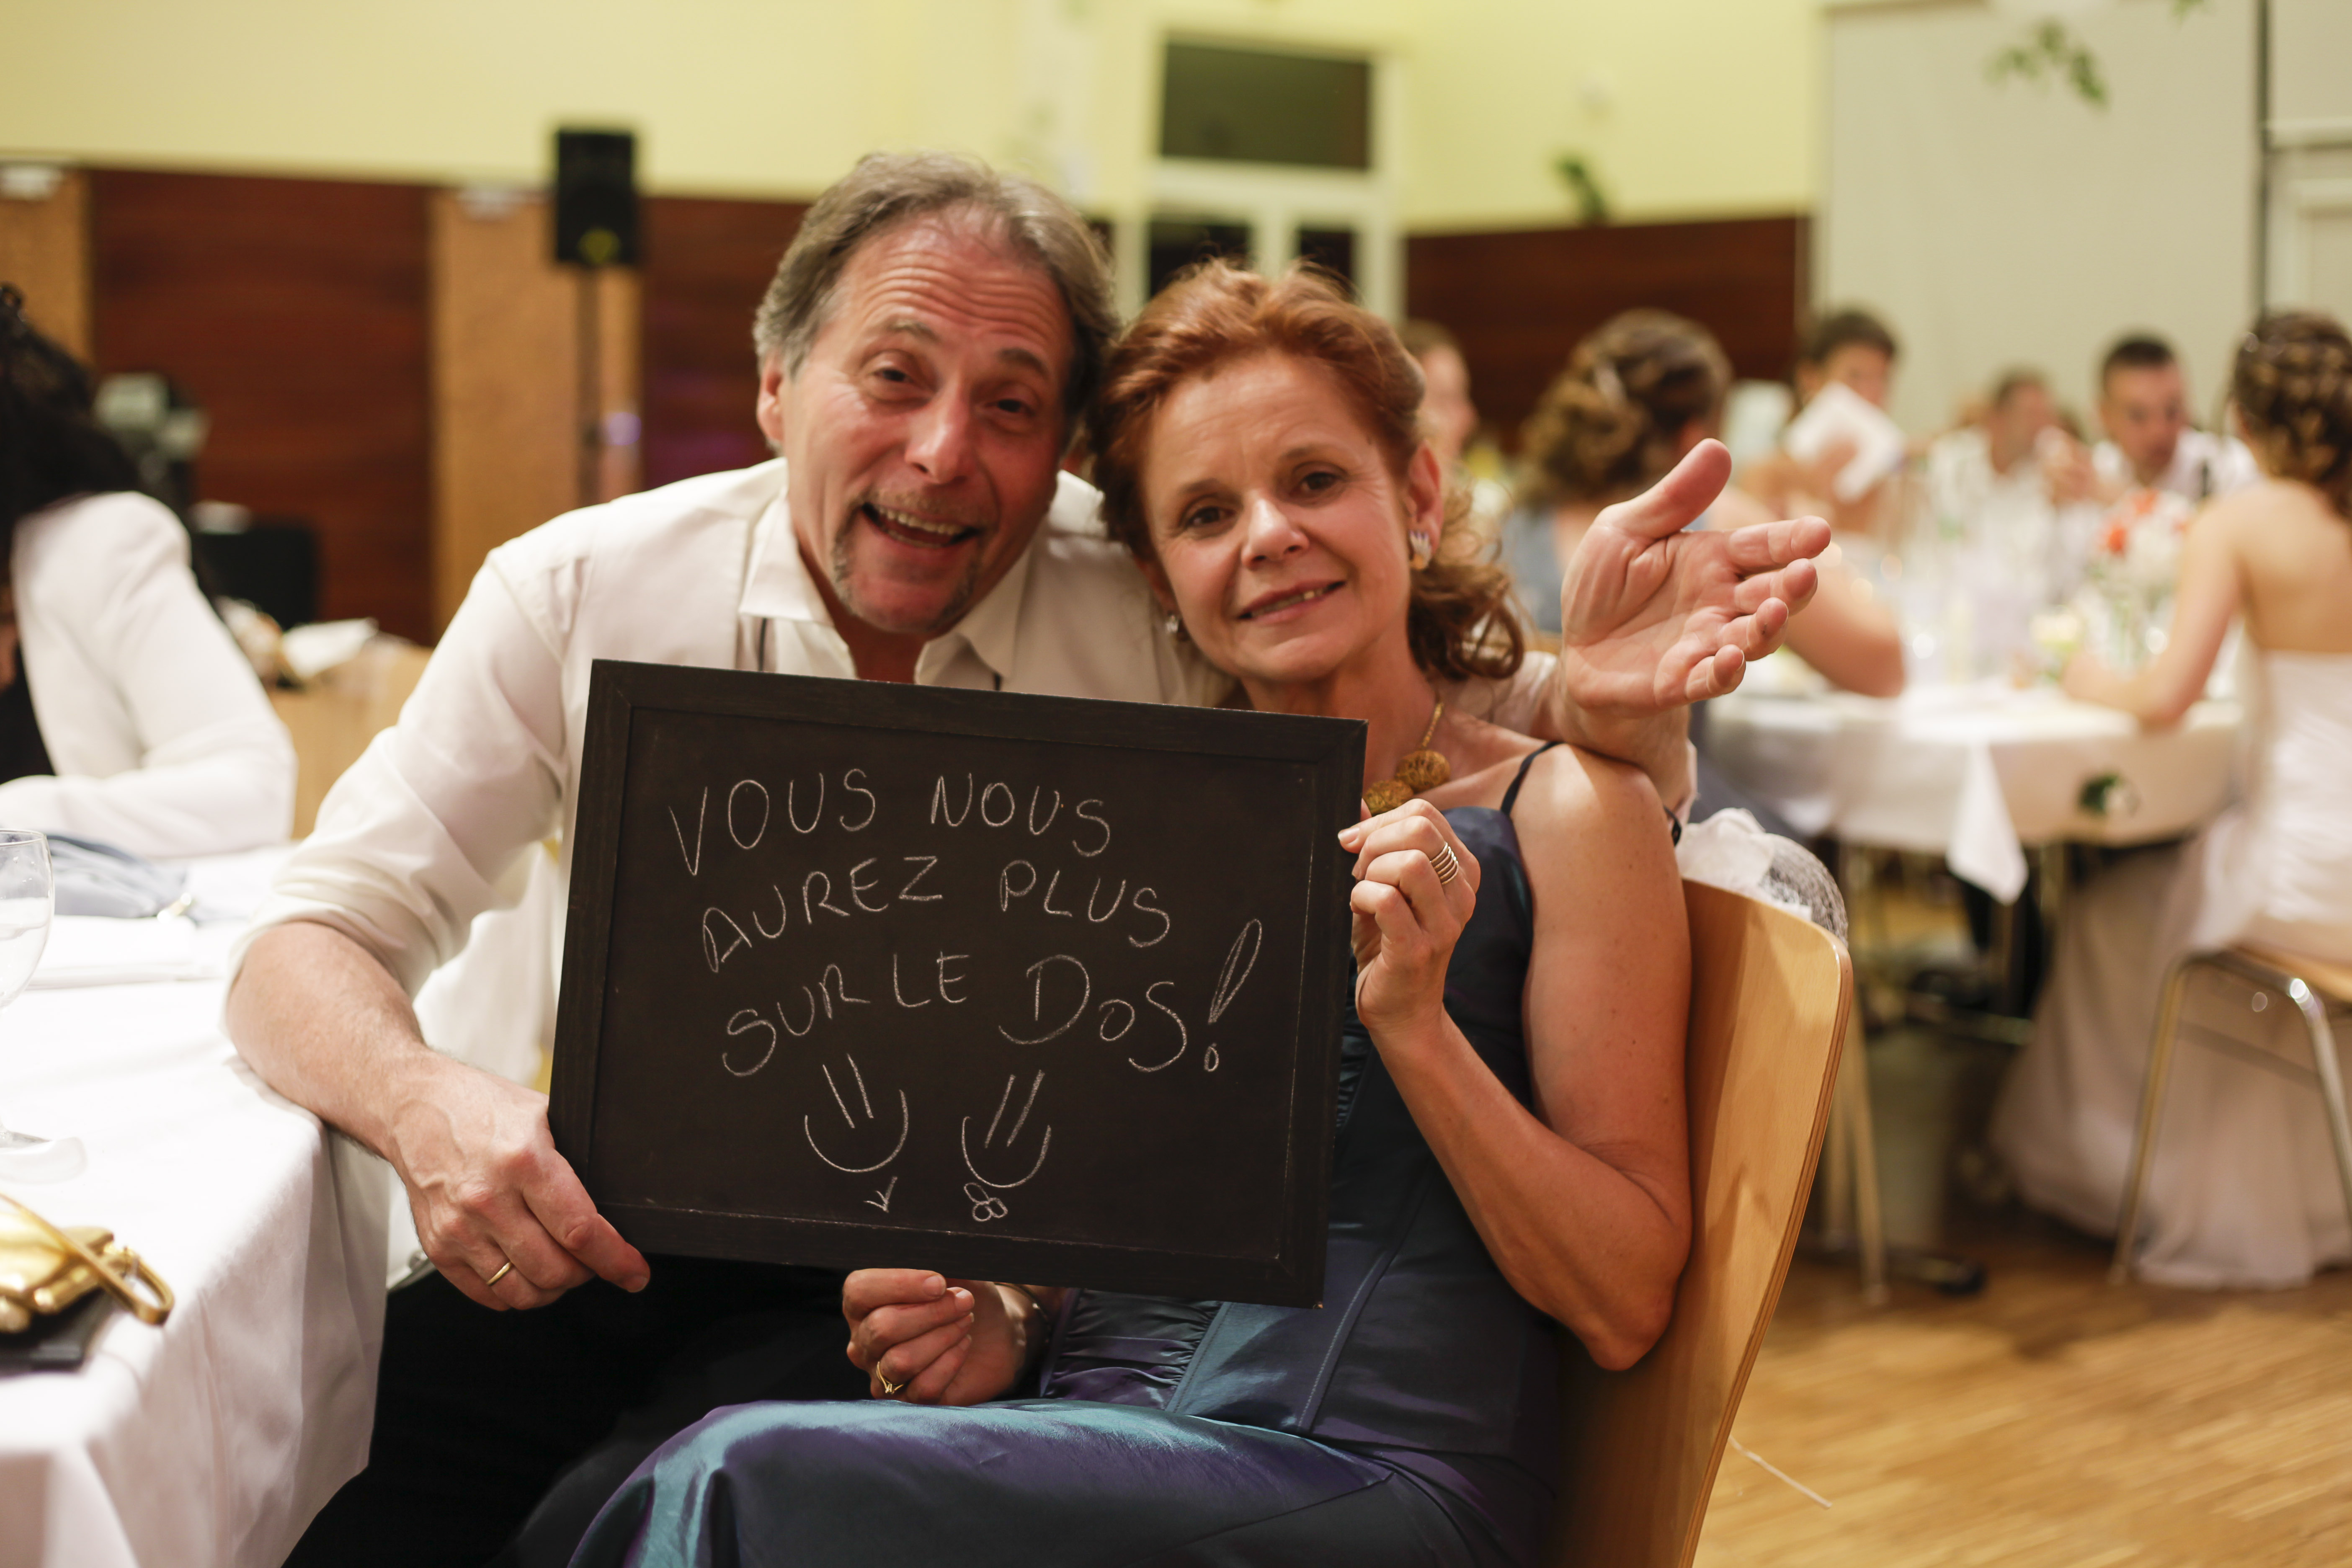 VOUS NOUS
AUREZ PLUS
SUR LE DOS!